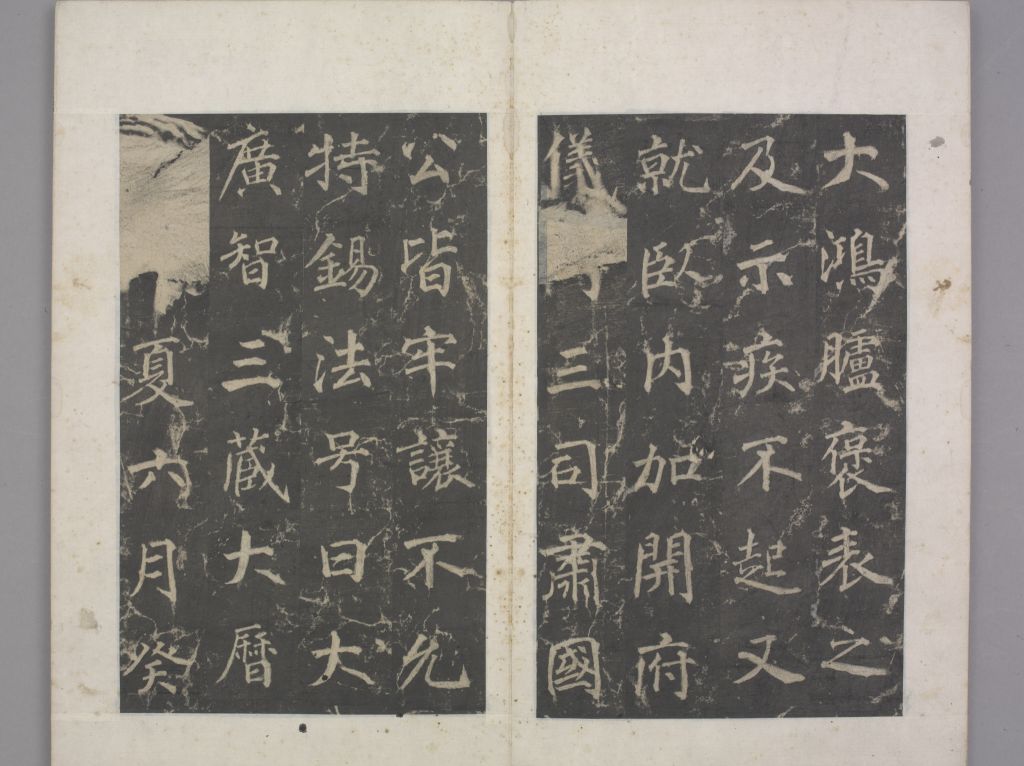 大鴻臚褒表之
及示疾不起又
就臥内加開府
儀司三司肅國
公皆牢讓不允
特錫法号曰大
廣智三蔵大曆
夏六月癸